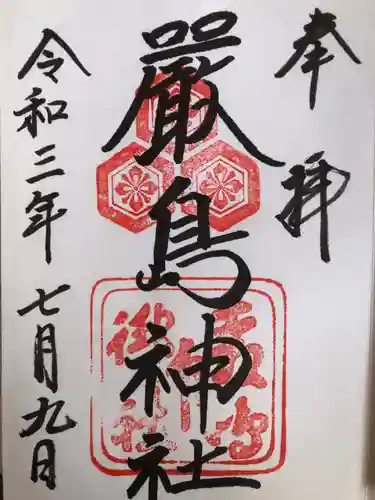 奉拝
嚴島神社
令和三年七月九日